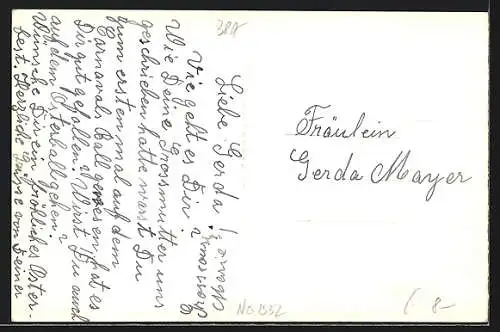 388
Liebe Gerda!
Wie geht es Dir?
Wie Deine Grossmutter uns
geschrieben hatte warst Du
zum ersten mal auf dem
Carnavals Ball gewesen, hat es
Dir gut gefallen? Wirst Du auch
auf den Osterball gehen?
Wünsche Dir ein fröhliches Oster-
fest. Herzliche Grüsse von Deiner
Grossmama
Fräulein
Gerda Mayer
8-